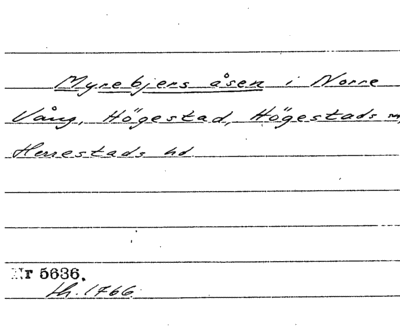 Myrebjers åsen i Norre
Vång, Högestad, Högestads
Herrestads hd
Nr 5636.
th. 1766